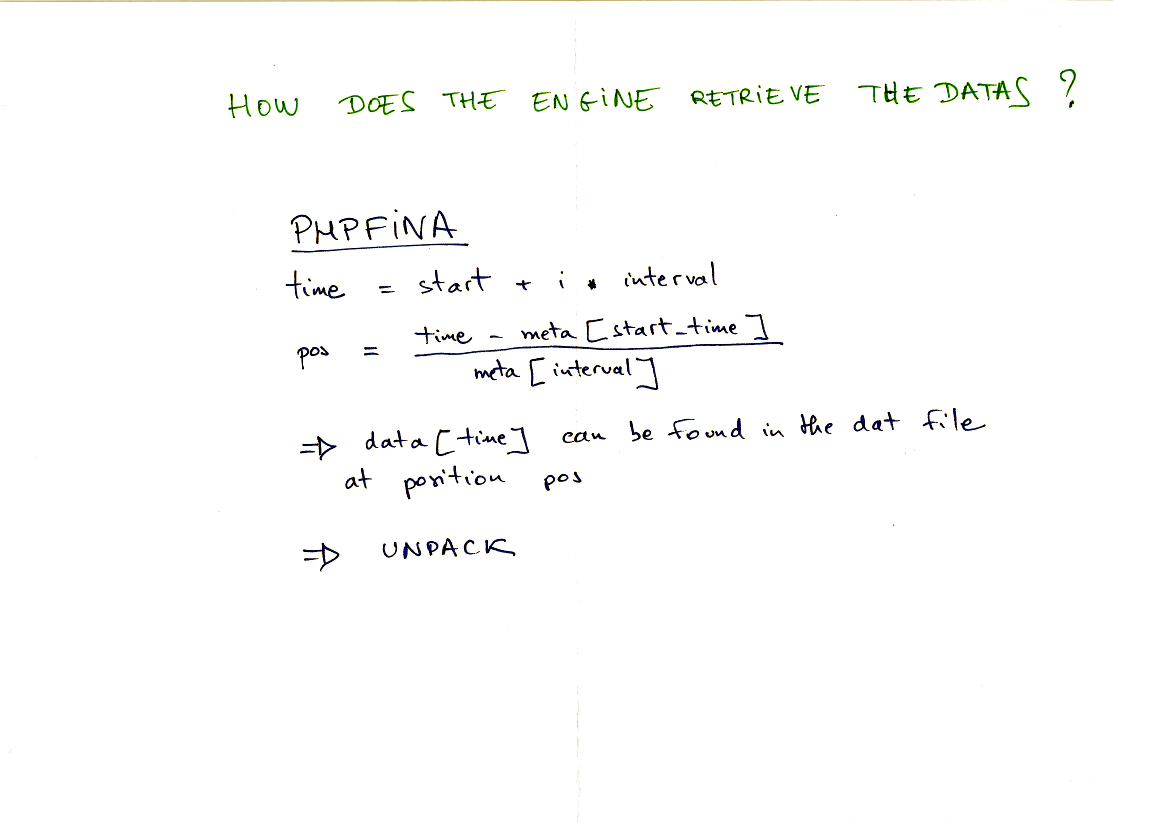 HOW DOES THE ENGINE RETRIEVE THE DATAS ?
PHPFINA
time = start + i * interval
pos = time - meta [start_time]
meta [interval]
⇒ data [time] can be found in the dat file
at position pos
⇒ UNPACK